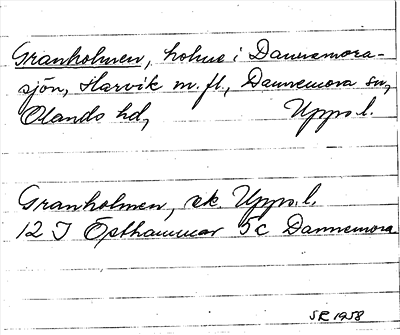 Granholmen, holme i Dannemora-
sjön, Harvik m. fl., Dannemora sn,
Olands hd, Upps. l.
Granholmen, ek. Upps. l.
12 I Östhammar 5c Dannemora
SR 1958